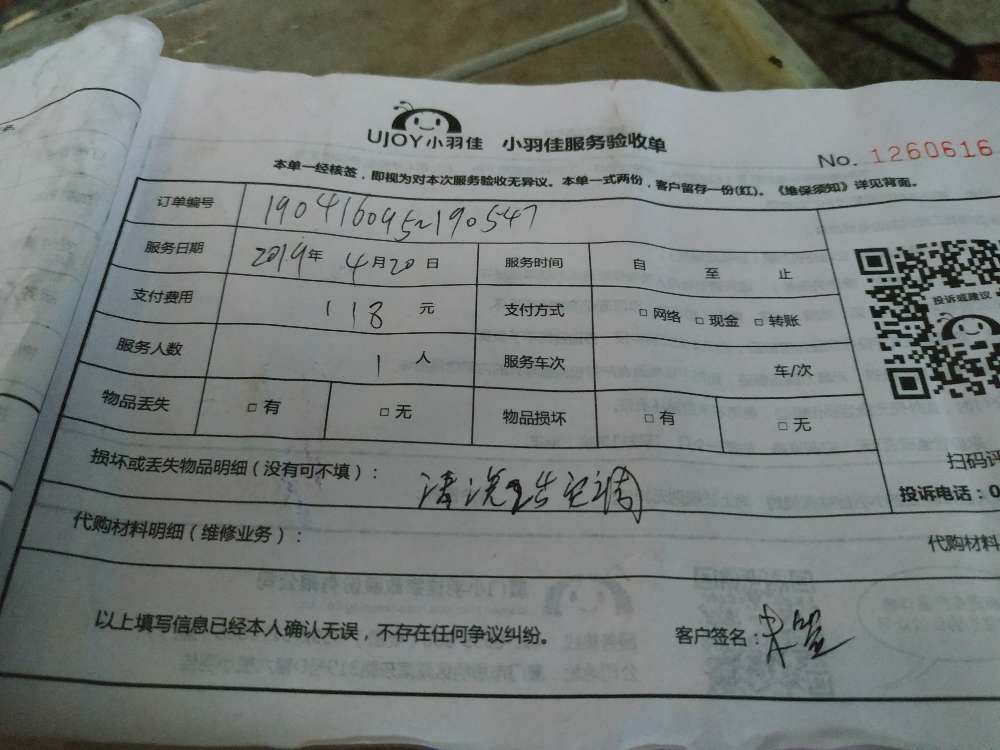 UJOY小羽佳 小羽佳服务验收单
No. 1260616
本单一经核签，即视为对本次服务验收无异议。本单一式两份，客户留存一份(红)。《维保须知》详见背面。
订单编号 190416095~190547
服务日期 2019年 4月20日 服务时间 自 至 止
支付费用 118 元 支付方式 □ 网络 □ 现金 □ 转账
投诉或建议
服务人数 1 人 服务车次 车/次
物品丢失 □ 有 □ 无 物品损坏 □ 有 □ 无
损坏或丢失物品明细（没有可不填）： 清洗 空调
扫码评
投诉电话：0
代购材料明细（维修业务）：
代购材料
以上填写信息已经本人确认无误，不存在任何争议纠纷。 客户签名：